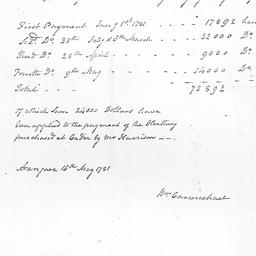 First Payment Jany 1st 1781 - - - - 17892
Secd. Do. 28th Feby & 6th March - - - 32000 Do
Third Do. 28th April - - - - 9000 Do
Fourth Do. 9th May - - - - 14000 Do
Total - - - - 72892
of which Sum 24000 Dollars have
been applied to the payment of the Cloathing
purchased at Cadiz by Mr Harrison - - -
Aranjuez 16th May 1781
Wm Carmichael